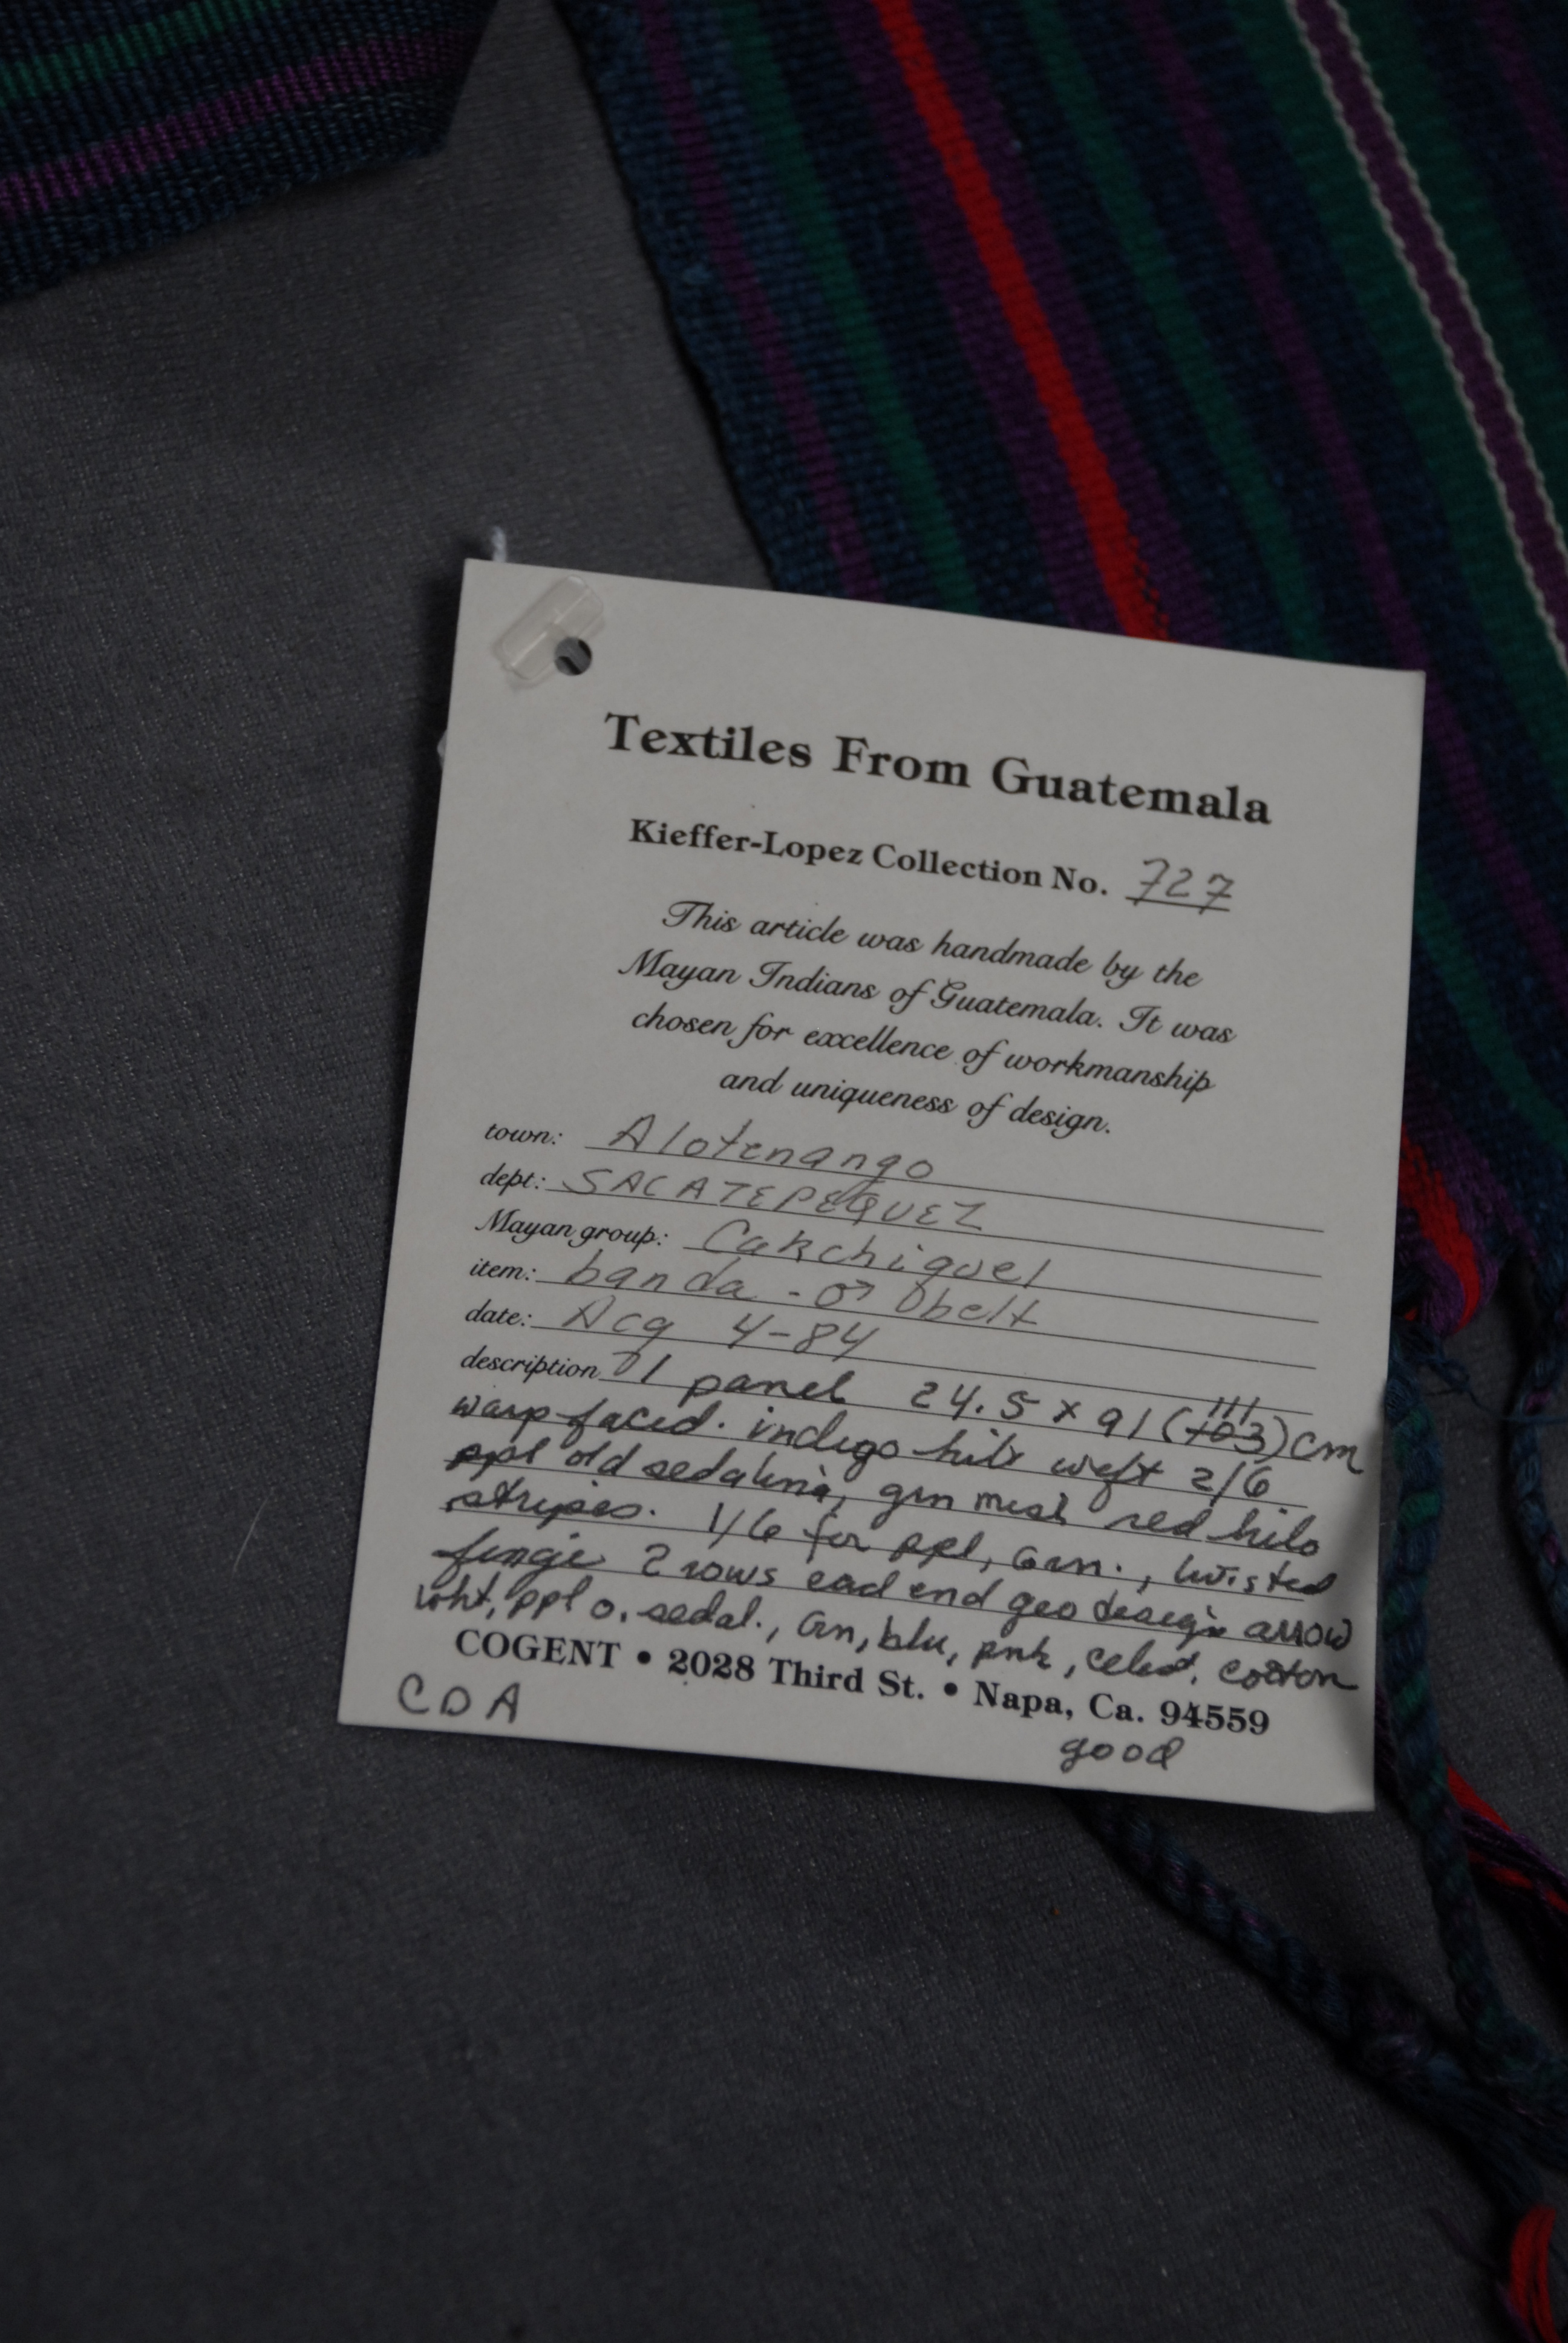 Textiles From Guatemala
Kieffer-Lopez Collection No. 727
This article was handmade by the
Mayan Indians of Guatemala. It was
chosen for excellence of workmanship
and uniqueness of design.
town: Alotenango
dept: SACATEPEQUEZ
Mayan group: Cakchiquel
item: banda - ♂ belt
date: Acq 4-84
description 1 panel 24.5 x 91 (111) cm
warp-faced. indigo hilo weft 2/6
ppl old sedalina, grn mish red hilo
stripes. 1/6 for ppl, Grn., twisted
fringe 2 rows each end geo design arrow
wht, ppl o. sedal., Grn, blu, pnk, celest. cotton
COGENT • 2028 Third St. • Napa, Ca. 94559
CDA
good